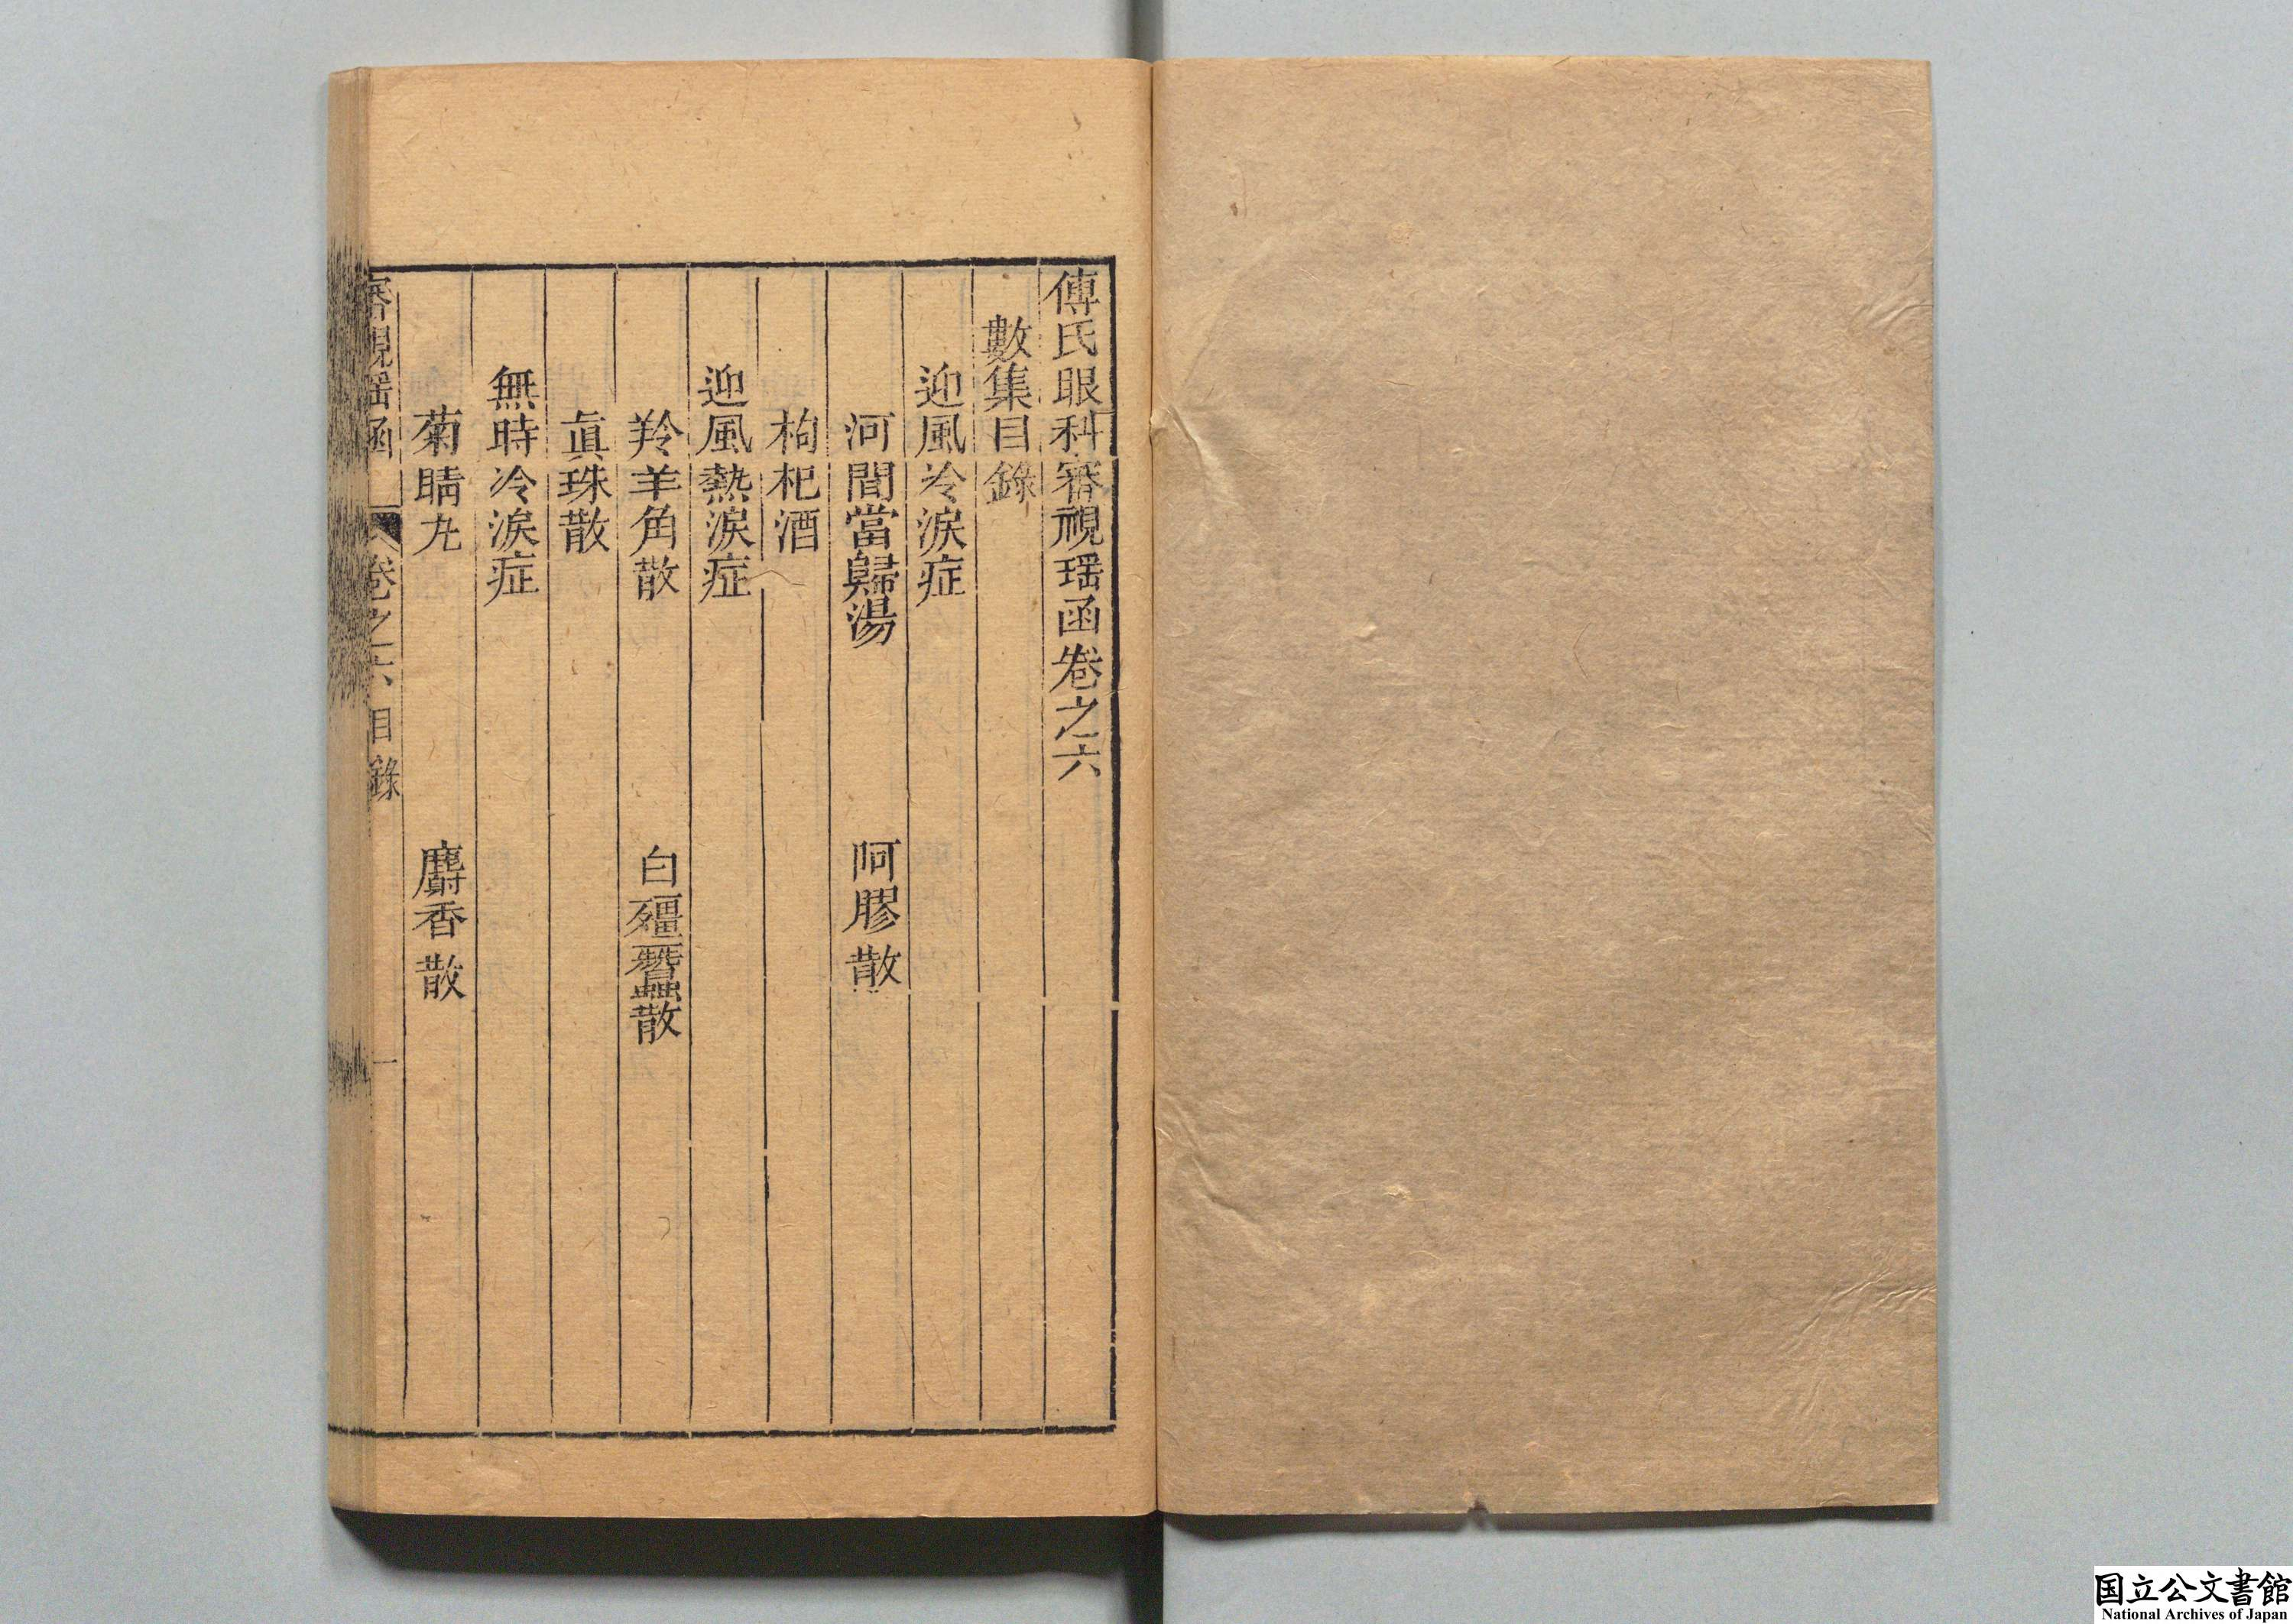 傅氏眼科審視瑶函卷之六
數集目錄
迎風冷淚症
河間當歸湯　阿膠散
枸杞酒
迎風熱淚症
羚羊角散　白殭蠶散
眞珠散
無時冷淚症
菊睛丸　麝香散
審視瑶函　卷之六目錄　一
国立公文書館
National Archives of Japan